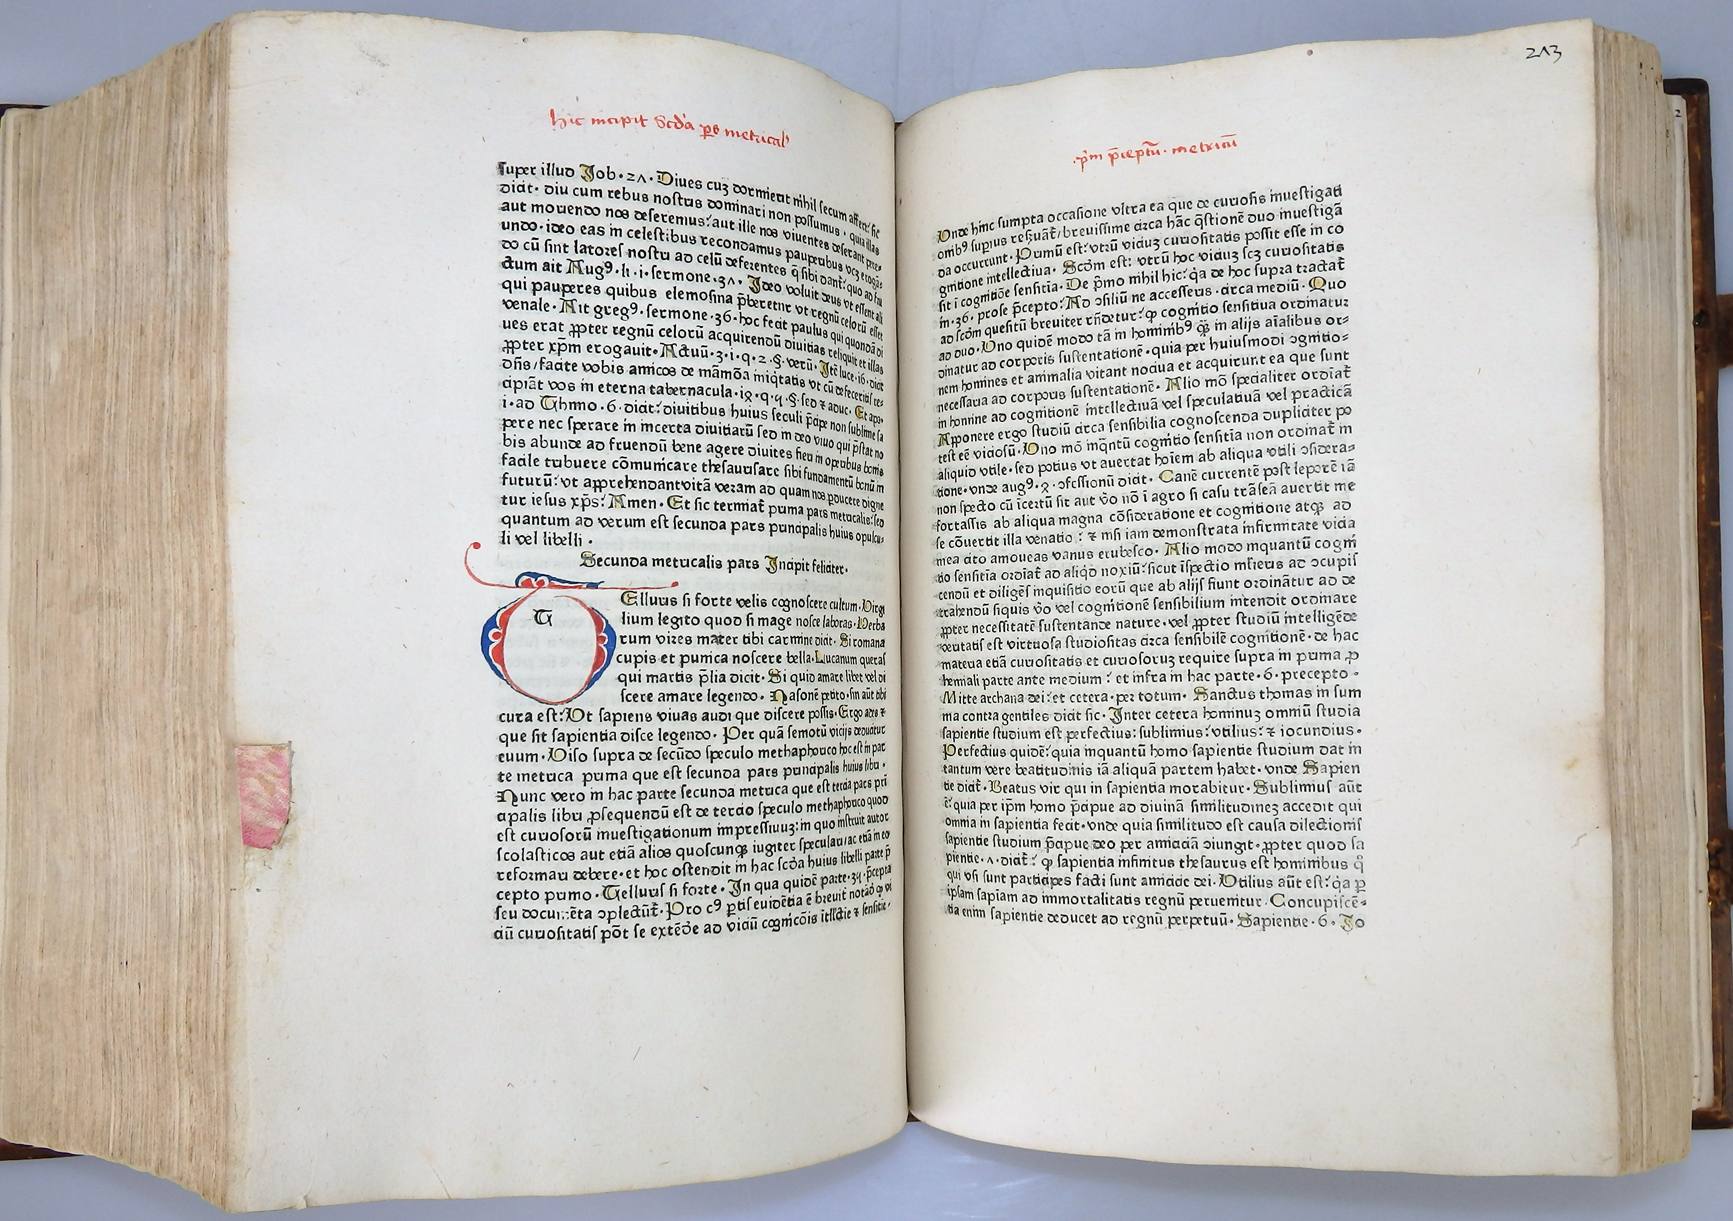 hic incipit Scda ps metrical
super illud Job · 21 · Diues cuz dormierit nihil secum afferet: sic
dicit · diu cum rebus nostris dominari non possumus · quia illas
aut mouendo nos deseremus: aut ille nos viuentes deserant pere-
undo · ideo eas in celestibus recondamus pauperibus vcz erogãs
do cũ sint latores nostri ad celũ deferentes q̃ sibi dant: quo ad
ctum ait Aug9 · li · i · sermone · 31 · Ideo voluit deus vt essent ali
qui pauperes quibus elemosina p̃beretur vt regnũ celorũ esset
venale · Ait greg9 · sermone · 36 · hoc fecit paulus qui quondã di
ues erat ꝓpter regnũ celorũ acquirendũ diuitias reliquit et illas
ꝓpter xp̃m erogauit · Actuũ · 3 · i · q · 2 · § · verũ · Itẽ luce · 16 · dicit
dñs / facite vobis amicos de mãmõa iniq̃tatis vt cũ defeceritis re-
cipiãt vos in eterna tabernacula · ix · q · 4 · § · sed ⁊ aduc · Et apo-
i · ad Thimo · 6 · dicit: diuitibus huius seculi p̃cipe non sublime sa
pere nec sperare in incerta diuitiarũ sed in deo viuo qui p̃stat no
bis abunde ad fruendũ bene agere diuites fieri in operibus bonis
facile tribuere cõmunicare thesaurisare sibi fundamentũ bonũ in
futurũ: vt apprehendantvitã veram ad quam nos ꝑducere digne
tur iesus xp̃s: Amen · Et sic termiat̃ prima pars metricalis: sed
quantum ad verum est secunda pars principalis huius opuscu-
li vel libelli ·
Secunda metricalis pars Incipit feliciter ·
T
Elluris si forte velis cognoscere cultum · Virgi
lium legito quod si mage nosce laboras · Herba
rum vires mater tibi carmine dicit · Si romana
cupis et punica noscere bella · Lucanum queras
qui martis p̃lia dicit · Si quid amare libet vel di
scere amare legendo · Nasonẽ petito · sin aũt tibi
cura est: Vt sapiens viuas audi que discere possis · Ergo ades ⁊
que sit sapientia disce legendo · Per quã semotũ vicijs deducitur
euum · Viso supra de secũdo speculo methaphorico hoc est in par
te metrica prima que est secunda pars principalis huius libri ·
Nunc vero in hac parte secunda metrica que est tercia pars prĩ
cipalis libri ꝓsequendũ est de tercio speculo methaphorico quod
est curiosorũ inuestigationum impressiuuz: in quo instruit autor
scolasticos aut etiã alios quoscunqȝ iugiter speculari / ac etiã in eo
reformari debere · et hoc ostendit in hac scd̃a huius libelli parte p̃
cepto primo · Telluris si forte · In qua quidẽ parte · 34 · p̃cepta
seu documẽta ɔplectũt̃ · Pro c9 ꝑtis euidẽtia ẽ breuit̃ notãd̃ ꝙ vi
ciũ curiositatis põt se extẽd̃e ad viciũ cogn̄icõis ĩtll̃ctie ⁊ sensitie ·
213
p̃m p̃ceptũ · metricũ
Vnde hinc sumpta occasione vltra ea que de curiosis inuestigati
onib9 superius reseruãt̃ / breuissime circa hãc q̃stionẽ duo inuestigã
da occurrunt · Primũ est: vtrũ viciuz curiositatis possit esse in co
gnitione intellectiua · Scd̃m est: vtrũ hoc viciuz scz curiositatis
sit ĩ cognitiõe sensitĩa · De p̃mo nihil hic: q̃a de hoc supra tractat̃
in · 36 · prose p̃cepto: Ad ɔsiliũ ne accesseris · circa mediũ · Quo
ad scd̃m quesitũ breuiter rñdetur: ꝙ cognitio sensitiua ordinatur
ad duo · Vno quidẽ modo tã in hominib9 q̃ȝ in alijs aĩalibus or-
dinatur ad corporis sustentationẽ · quia per huiusmodi ɔgnitio-
nem homines et animalia vitant nociua et acquirunt ea que sunt
necessaria ad corporis sustentationẽ · Alio mõ specialiter ordiat̃
in homine ad cognitionẽ intellectiuã vel speculatiuã vel practicã
Apponere ergo studiũ circa sensibilia cognoscenda dupliciter po
test eẽ viciosũ · Vno mõ inq̃ntũ cognitio sensitĩa non ordinat̃ in
aliquid vtile · sed potius vt auertat hoĩem ab aliqua vtili ɔsidera-
tione · vnde aug9 · x · ɔfessionũ dicit · Canẽ currentẽ post leporẽ iã
non specto cũ ĩcertũ sit aut v̄o nõ ĩ agro si casu trãseã auertit me
fortassis ab aliqua magna cõsideratione et cognitione atqȝ ad
se cõuertit illa venatio: ⁊ nisi iam demonstrata infirmitate vicia
mea cito amoueas vanus erubesco · Alio modo inquantũ cogni
tio sensitĩa ordiat̃ ad aliq̃d noxiũ: sicut ĩspectio ml̃ieris ad ɔcupis
cendũ et diligẽs inquisitio eorũ que ab alijs fiunt ordinãtur ad de
trahendũ siquis v̄o vel cognitionẽ sensibilium intendit ordinare
ꝓpter necessitatẽ sustentande nature · vel ꝓpter studiũ intelligẽde
veritatis est virtuosa studiositas circa sensibilẽ cognitionẽ · de hac
materia etiã curiositatis et curiosoruz require supra in prima ꝓ
hemiali parte ante medium: et infra in hac parte · 6 · precepto ·
Mitte archana dei: et cetera · per totum · Sanctus thomas in sum
ma contra gentiles dicit sic · Inter cetera hominuz omniũ studia
sapientie studium est perfectius: sublimius: vtilius: ⁊ iocundius ·
Perfectius quidẽ: quia inquantũ homo sapientie studium dat in
tantum vere beatitudinis iã aliquã partem habet · vnde Sapien
tie dicit̃ · Beatus vir qui in sapientia morabitur · Sublimius aũt
ẽ: quia per ip̃m homo p̃cipue ad diuinã similitudinez accedit qui
omnia in sapientia fecit · vnde quia similitudo est causa dilectionis
sapientie studium p̃cipue deo per amiciciã ɔiungit · ꝓpter quod sa
pientie · 1 · dicit̃: ꝙ sapientia infinitus thesaurus est hominibus q̊
qui vsi sunt participes facti sunt amicicie dei · Vtilius aũt est: q̃a ꝑ
ipsam sapiam ad immortalitatis regnũ peruenitur · Concupiscẽ-
tia enim sapientie deducet ad regnũ perpetuũ · Sapientie · 6 · Io